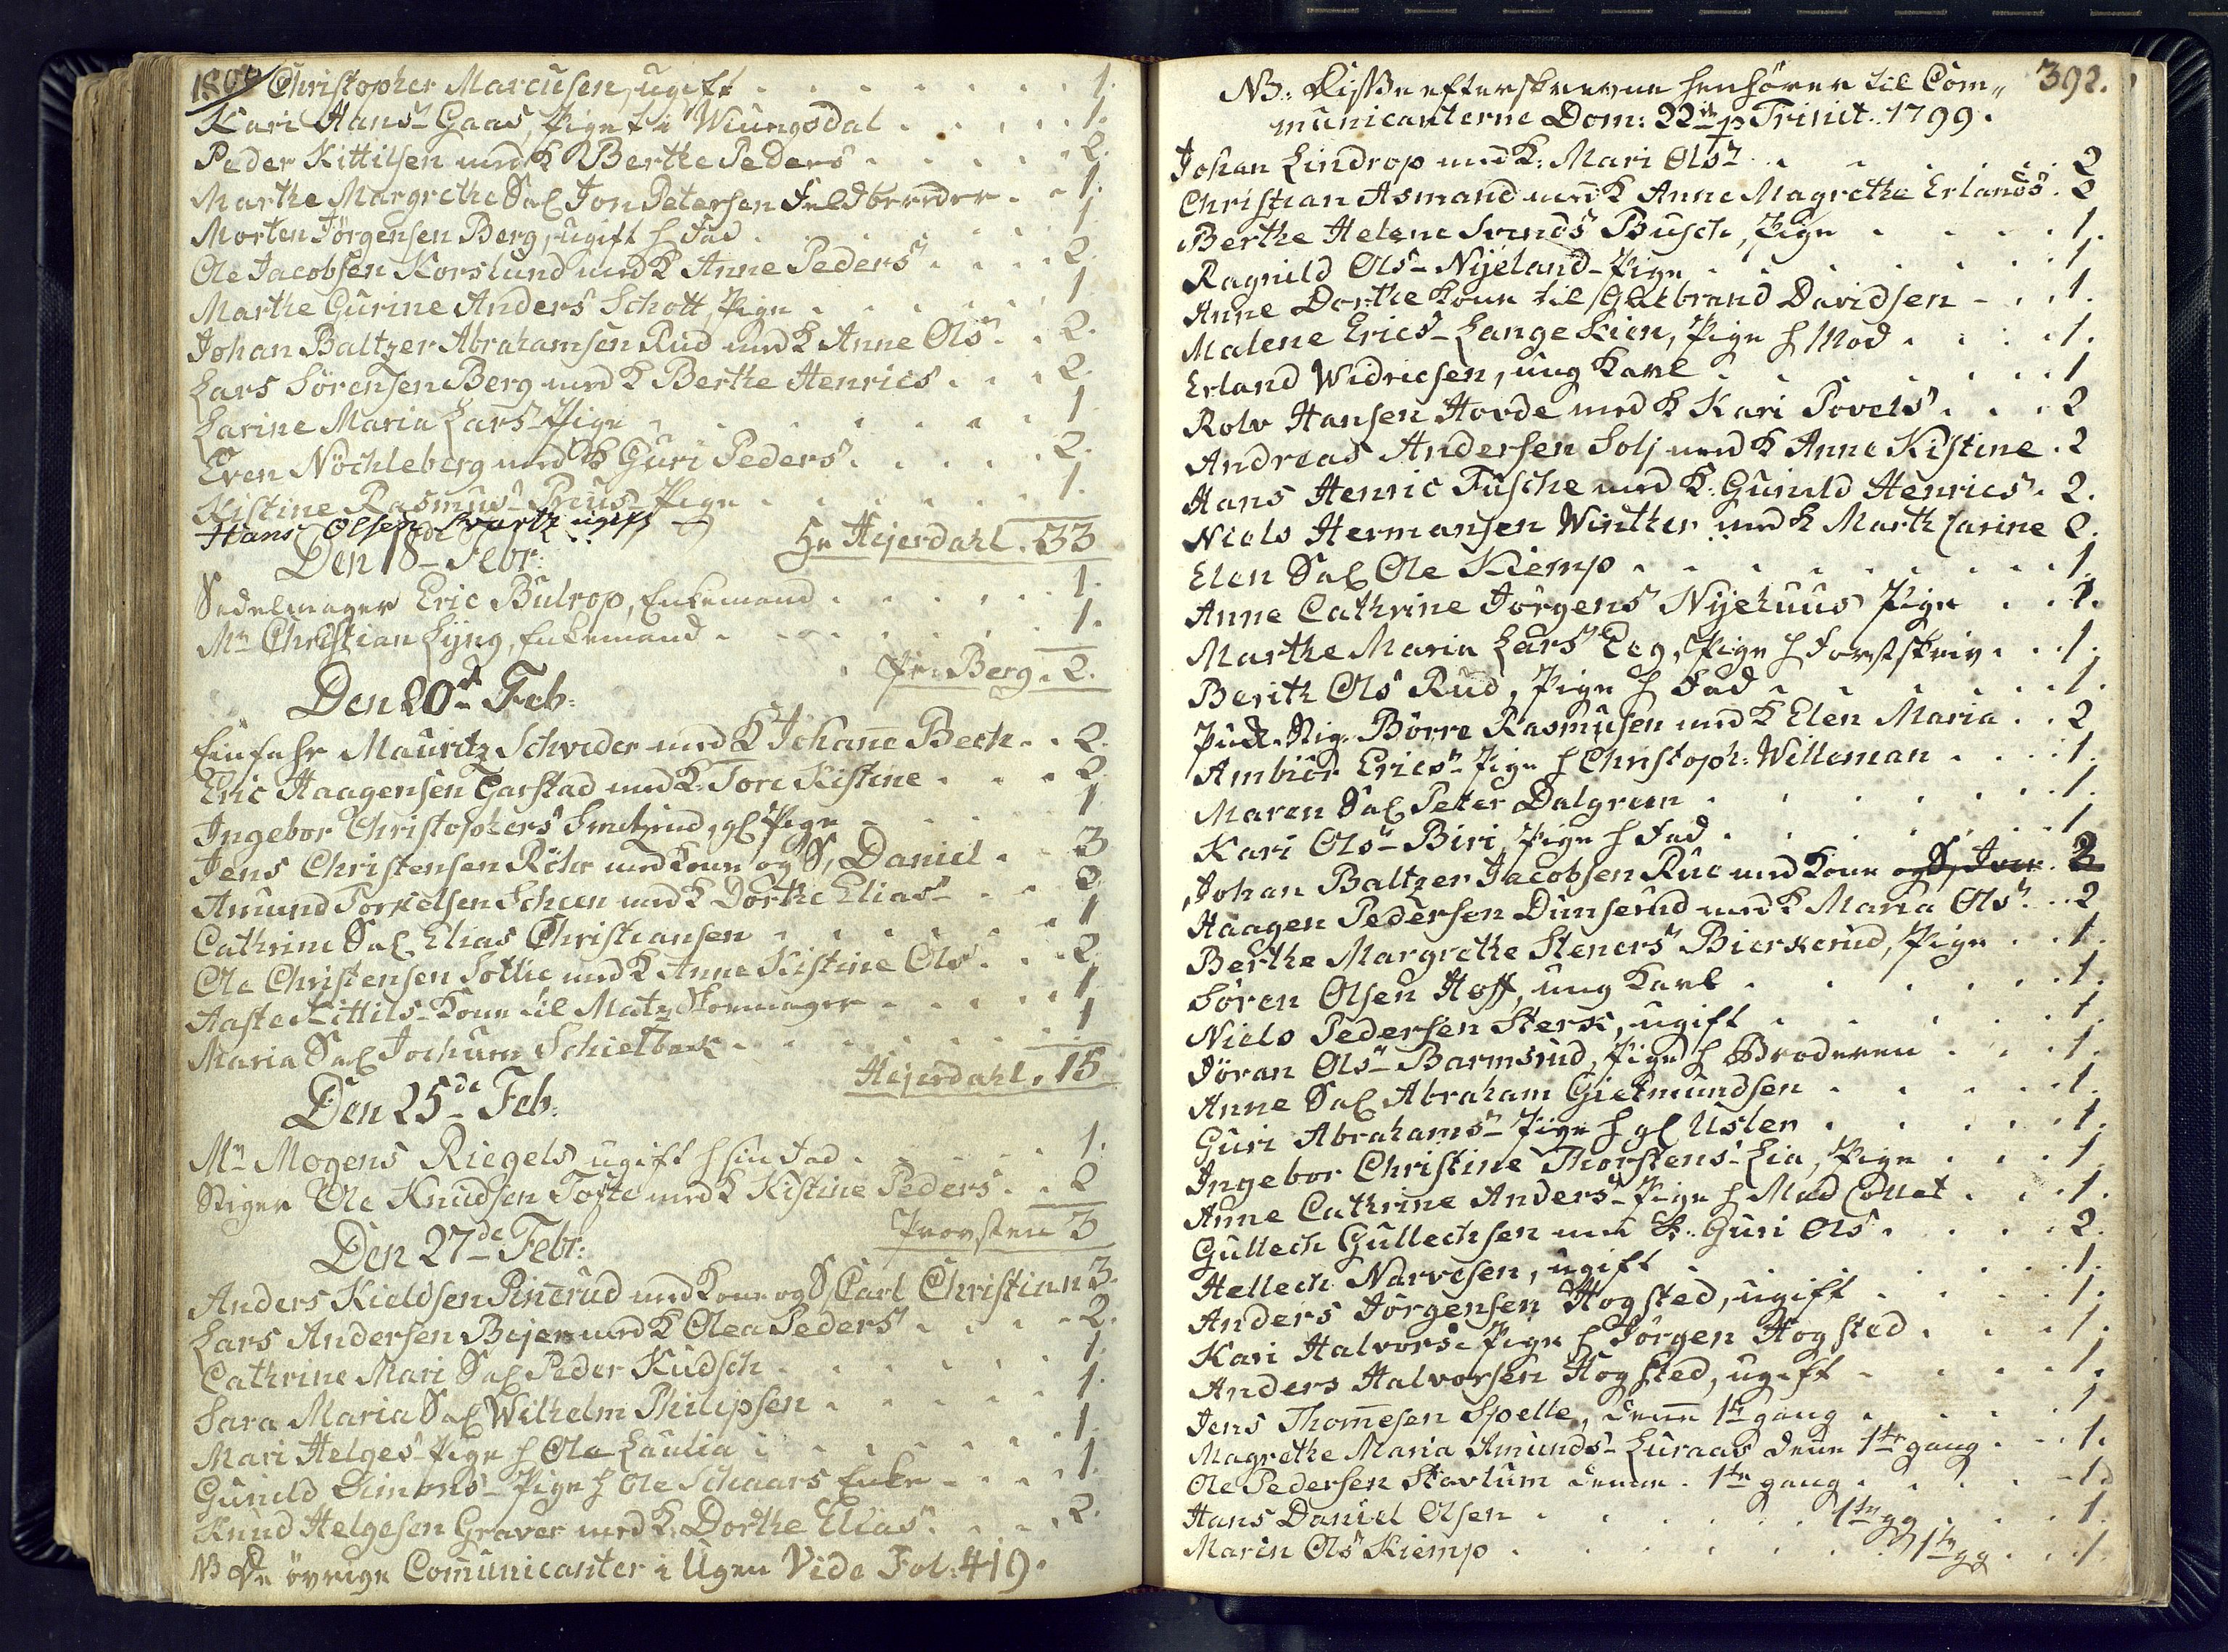 Christopher Marcusen, ugift . . . . . . . 1.
Kari Hans Gaas, Pige i . . . . . 1.
Peder Kittilsen med K Berthe Peders . . . . . 2.
Marthe Margrethe Sal Jon Petersen Feldbereder . . 1.
Morten Jörgensen Berg, ugift h Fad . . . . . 1
Ole Jacobsen Korslund med K Anne Peders . . . . 2.
Marthe Gurine Anders Schott, Pige . . . . . 1
Johan Baltzer Abrahamsen Rud med K Anne Ols . . 2.
Lars Sörensen Berg med K Berthe Henrics . . . 2.
Larine Maria Lars Pige . . . . . . 1
Even Nöchleberg med K Guri Peders . . . . . 2.
Kistine Rasmus Preus Pige . . . . . . 1.
Hans Olsen ugift
Hr Hejerdahl . 33
Den 18 Febr:
Sadelmager Eric Bulrop, Enkemand . . . . . . 1.
Mr Christian Lÿng, Enkemand . . . . . . . 1.
Berg . 2.
Den 20de Feb:
Mauritz Schrøder med K Johanne Bech . . 2.
Eric Haagensen Garstad med K Tore Kistine . . . . 2
Ingebor Christophers gl Pige . . . . 1
Jens Christensen Röhr med Kone og S, Daniel . . 3
Amund Torkelsen Scheen med K Dorthe Elias . . 2
Cathrine Sal Elias Christiansen . . . . . . 1
Ole Christensen Sotlie med K Anne Kistine Ols . . . 2
Aaste Kittils Kone til Matz Skomager . . . . . 1
Maria Sal Jochum Schielbæk . . . . . . 1
Hejerdahl . 15
Den 25de Feb:
Mr Mogens Riegels ugift h sin Fad . . . . . 1.
Stiger Ole Knudsen Tofte med K Kistine Peders . . 2
Provsten 3
Den 27de Febr:
Anders Kieldsen Pinerud med Kone og S, Carl Christian 3.
Lars Andersen Bejer med K Olea Peders . . . . 2.
Cathrine Mari Sal Peder Kudsch . . . . . 1.
Sara Maria Sal Wilhelm Philipsen . . . . 1.
Mari Helges Pige h Ole Laulia . . . . . . 1.
Gunild Simons Pige h Ole Schaars Enke . . . . 1
Knud Helgesen Graver med K Dorthe Elias . . . . 2.
NB De övrige Communicanter i Ugen Vide Fol: 419.
392.
NB: Disse efterskrevne henhörer til Com„
municanterne Dom: 22de p Trinit. 1799.
Johan Lindrop med K: Mari Ols . . . . . . 2
Christian Asmand med K Anne Magrethe Erlands . 2
Berthe Helene Svends Busch, Pige . . . . . 1.
Ragnild Ols Nÿeland Pige . . . . . . . 1
Anne Dorthe Kone til Gulbrand Davidsen . . . 1.
Malene Erics Langeskien, Pige h Mod . . . . 1.
Erland Widricsen, ung Karl . . . . . . 1
Rolv Hansen Hovde med K Kari Povels . . . 2
Andreas Andersen Solj med K Anne Kistine . 2
Hans Henric Fusche med K: Gunild Henrics . 2.
Niels Hermansen Winther med K Marth Carine 2.
Elen Sal Ole Kiemp . . . . . . . . 1
Anne Cathrine Jörgens Nÿehuus Pige . . 1.
Marthe Maria Lars Eeg, Pige h Forstskriv . . 1.
Berith Ols Rud, Pige h Fad . . . . . . 1.
Stig. Börre Rasmusen med K Elen Maria . . 2
Ambiör Erics Pige h Christoph: Willeman . . . . 1.
Maren Sal Peter Dalgreen . . . . . . . 1.
Kari Ols Biri, Pige h Fad . . . . . . 1
Johan Baltzer Jacobsen Rue med Kone og S, Iver . 2
Haagen Pedersen Dunserud med K Maria Ols . . 2
Berthe Margrethe Steners Bierkerud, Pige . . 1.
Sören Olsen Hoff, ung Karl . . . . . . 1.
Niels Pedersen Sterk, ugift . . . . . . 1.
Jöran Ols Barmsrud, Pige h Broderen . . . 1.
Anne Sal Abraham Gietmundsen . . . . . 1.
Guri Abrahams Pige h gl Uslen . . . . . 1.
Ingebor Christine Thorstens Lia, Pige . . . 1
Anne Cathrine Anders Pige h Mad Collet . . . 1.
Gullech Gullechsen med K: Guri Ols . . . . 2.
Hellech Narvesen, ugift . . . . . . . 1.
Anders Jörgensen Hogsted, ugift . . . . 1.
Kari Halvors Pige h Jörgen Hogsted . . . 1.
Anders Halvorsen Hogsted, ugift . . . . 1.
Jens Thomesen Spelle, denne 1te gang . . . . 1
Magrethe Maria Amunds Luraas denne 1te gang . . 1.
Ole Pedersen Stavlum denne 1te gang . . . . 1.
Hans Daniel Olsen . . . . . . 1te gg . . . . 1.
Marin Ols Kiemp . . . . . . . 1te gg . . . 1